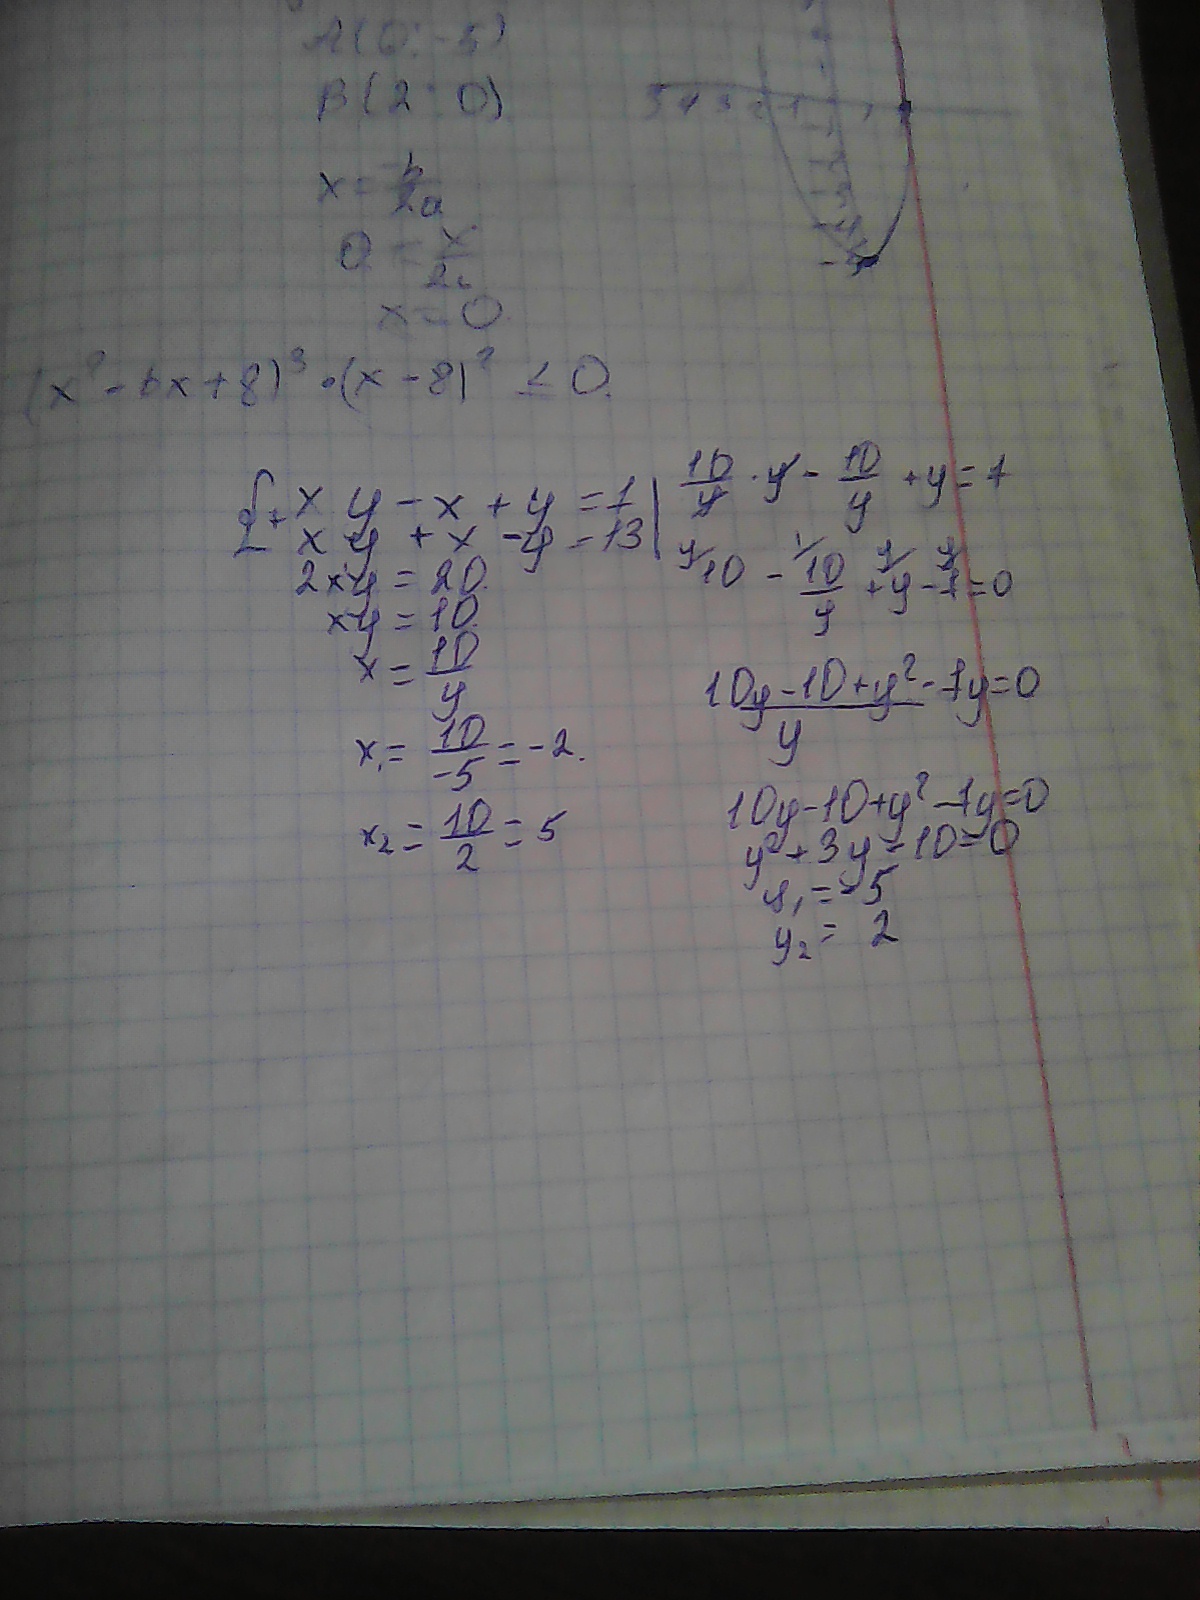 A(0; -5)
B(2; 0)
x = -b/2a
0 = x/2
x = 0
(x² - 6x + 8)³ · (x - 8)² ≤ 0.
{+ xy - x + y = 7
xy + x - y = 13
2xy = 20
xy = 10
x = 10/y
x₁ = 10/-5 = -2.
x₂ = 10/2 = 5
10/y · y - 10/y + y = 7
10 - 10/y + y - 7 = 0
10y - 10 + y² - 7y = 0
y
10y - 10 + y² - 7y = 0
y² + 3y - 10 = 0
y₁ = -5
y₂ = 2